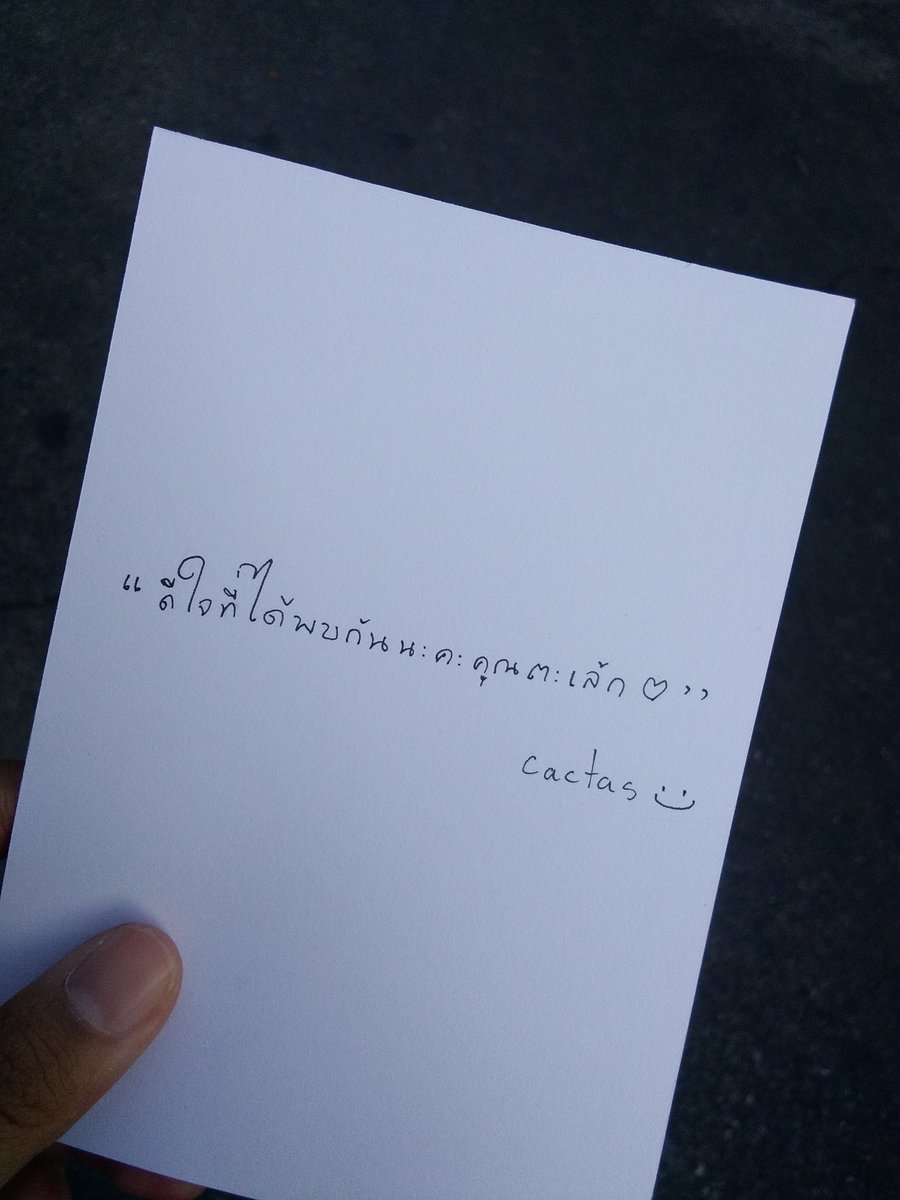 “ ดีใจที่ได้พบกันนะคะคุณตะเล้ก ♡ ”
cactas :)